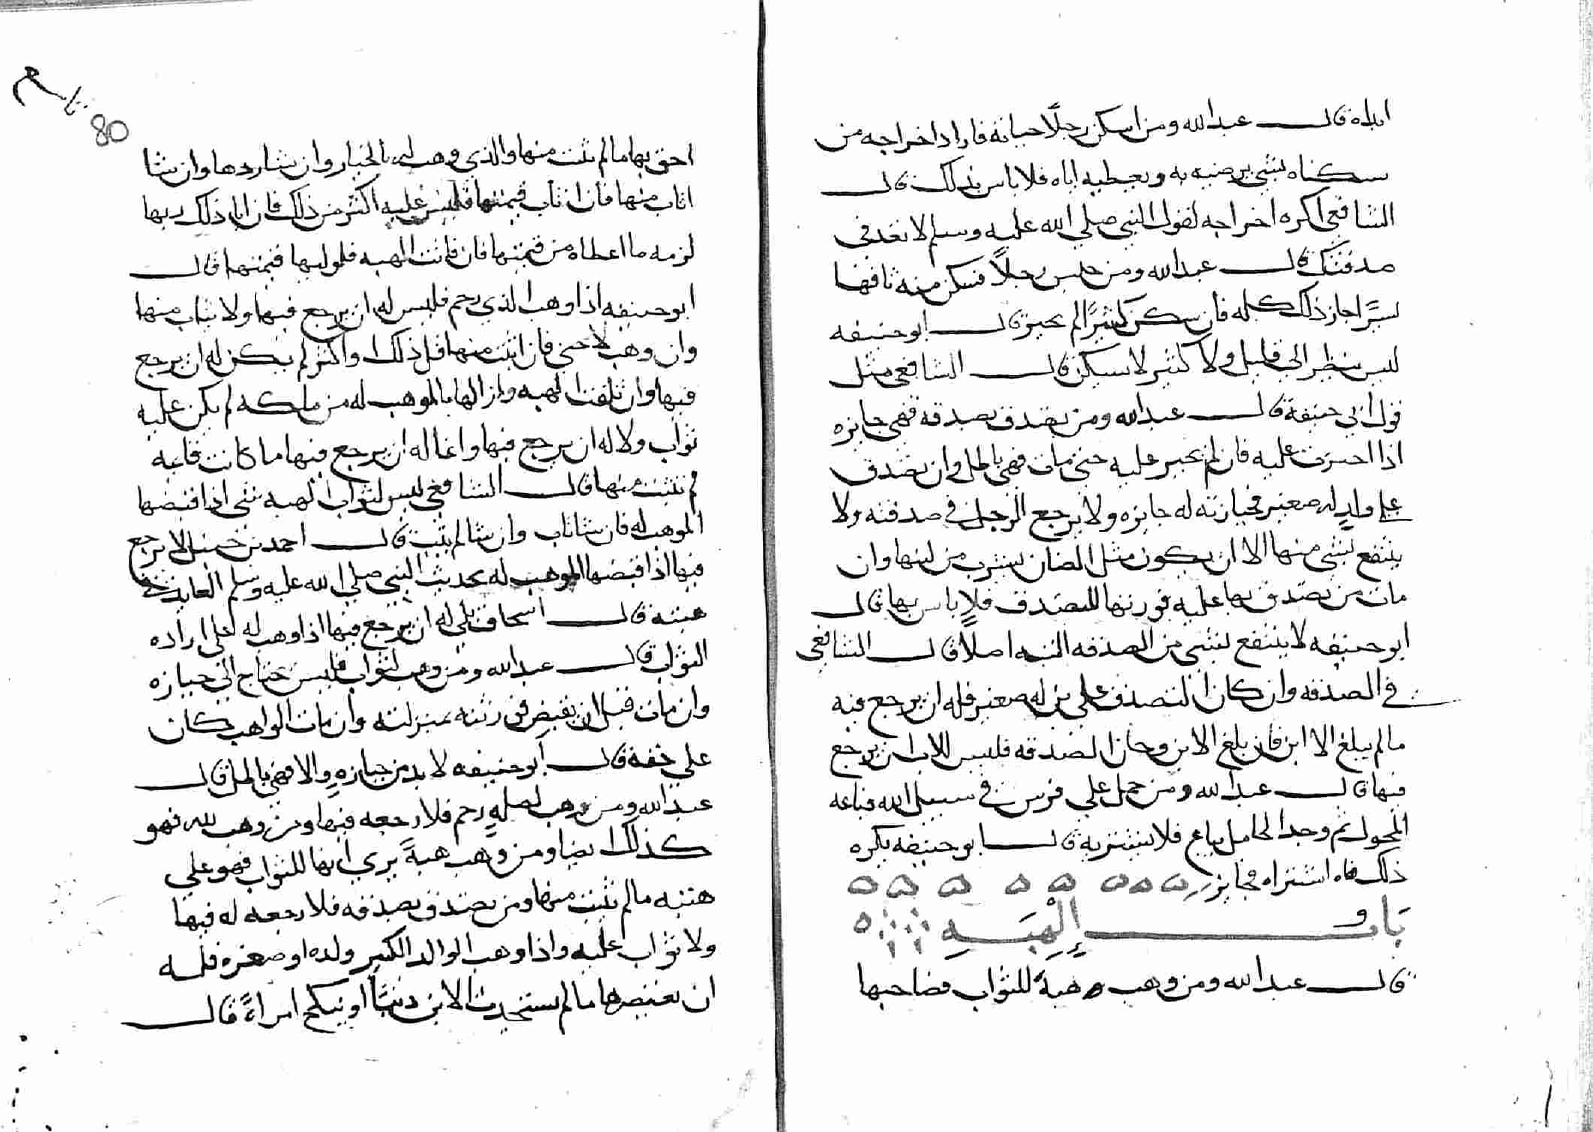 ابداه قال عبدالله ومن اسكن رجلا حياته فاراد اخراجه من
سكناه بشي يرضيه به ويعطيه اياه فلا باس بذلك قال
الشافعي اكره اخراجه لقول النبي صلي الله عليه وسلم لا تعد في
صدقتك قال عبدالله ومن حبس رجلا فسكن منه تافها
يسيرا جاز ذلك كله فان سكن كثيرا لم يجز قال ابو حنيفه
ليس ينظر الي قليل ولا كثير لا يسكن قال الشافعي مثل
قول ابي حنيفة قال عبدالله ومن تصدق بصدقه فهي جايزه
اذا احيزت عليه فان لم تحيز عليه حتي مات فهي باطل وان تصدق
علي ولد له صغير فحيازته له جايزه ولا يرجع الرجل في صدقته ولا
ينتفع بشي منها الا ان يكون مثل الضان يشرب من لبنها وان
مات من تصدق بها عليه فورثها المتصدق فلا باس بها قال
ابو حنيفه لا ينتفع بشي من الصدقه البته اصلا قال الشافعي
في الصدقه وان كان التصدق علي بن له صغير فله ان يرجع فيه
مالم يبلغ الابن فان بلغ الابن وحاز الصدقه فليس للاب ان يرجع
فيها قال عبدالله ومن حمل علي فرس في سبيل الله فباعه
المحمول ثم وجد الحامل يباع فلا يشتريه قال ابو حنيفه يكره
ذلك فان اشتراه فجايز ه ه ه ه ه ه ه ه
باب الهبة
قال عبدالله ومن وهب هبة للثواب فصاحبها
80
احق بها مالم يثب منها والذي وهب له بالخيار وان شا ردها وان شا
اثاب منها فان اثاب قيمتها فليس عليه اكثر من ذلك فان ابا ذلك ربها
لزمه ما اعطاه من قيمتها فان فاتت الهبه فلوليها قيمتها قال
ابو حنيفه اذا وهب الذي رحم فليس له ان يرجع فيها ولا يثاب منها
وان وهب لاجنبي فان اثيب منها قل ذلك او اكثر لم يكن له ان يرجع
فيها وان تلفت الهبه وازالها الموهب له من ملكه لم يكن عليه
ثواب ولا له ان يرجع فيها وانما له ان يرجع فيها ما كانت قايمه
لم يثب منها قال الشافعي ليس لثواب الهبه شي اذا قبضها
الموهب له فان شا اثاب وان شا لم يثب قال احمد بن حنبل لا يرجع
فيها اذا قبضها الموهب له بحديث النبي صلي الله عليه وسلم العايد في
هبته قال اسحاق بلي له ان يرجع فيها اذا وهب له علي اراده
الثواب قال عبدالله ومن وهب لثواب فليس يحتاج الي حيازه
وان مات قبل ان يقبض فورثته بمنزلته وان مات الواهب كان
علي حقه قال ابو حنيفه لا بد من حيازه والا فهي باطل قال
عبدالله ومن وهب لصله رحم فلا رجعه فيها ومن وهب لله فهو
كذلك ايضا ومن وهب هبة يري انها للثواب فهو علي
هبته مالم يثب منها ومن تصدق بصدقه فلا رجعه له فيها
ولا ثواب عليه واذا وهب الوالد الكبير ولده او صغيره فله
ان يعتصرها مالم يستحدث الابن دينا او ينكح امراة قال